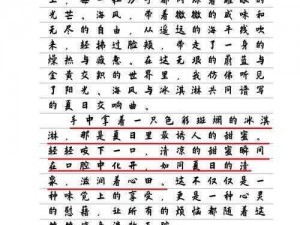 光芒。海风，带着微微的咸味和
无尽的自由，从遥远的海平线吹
来，轻拂过脸颊，带走了一身的
燥热与疲惫。在这无垠的蔚蓝与
金黄交织的世界里，我仿佛听见
了阳光、海风与冰共同谱写的
的夏日交响曲。
手中拿着一只色彩斑斓的冰淇
淋，那是夏日里最诱人的甜蜜。
轻轻咬下一口，清凉的甜蜜瞬间
在口腔中化开，如同夏日的清
泉，滋润着心田。这不仅仅是一
种味觉上的享受，更是一种心灵
的慰藉，让所有的烦恼都随着这